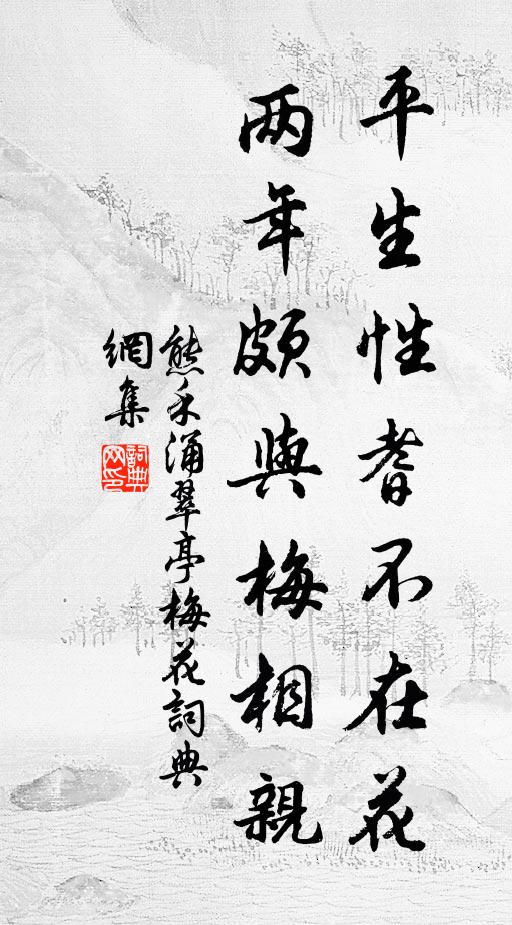 平生性耆不在花
两年頗與梅相親
熊禾涌翠亭梅花詞典
網集
詞典
网印